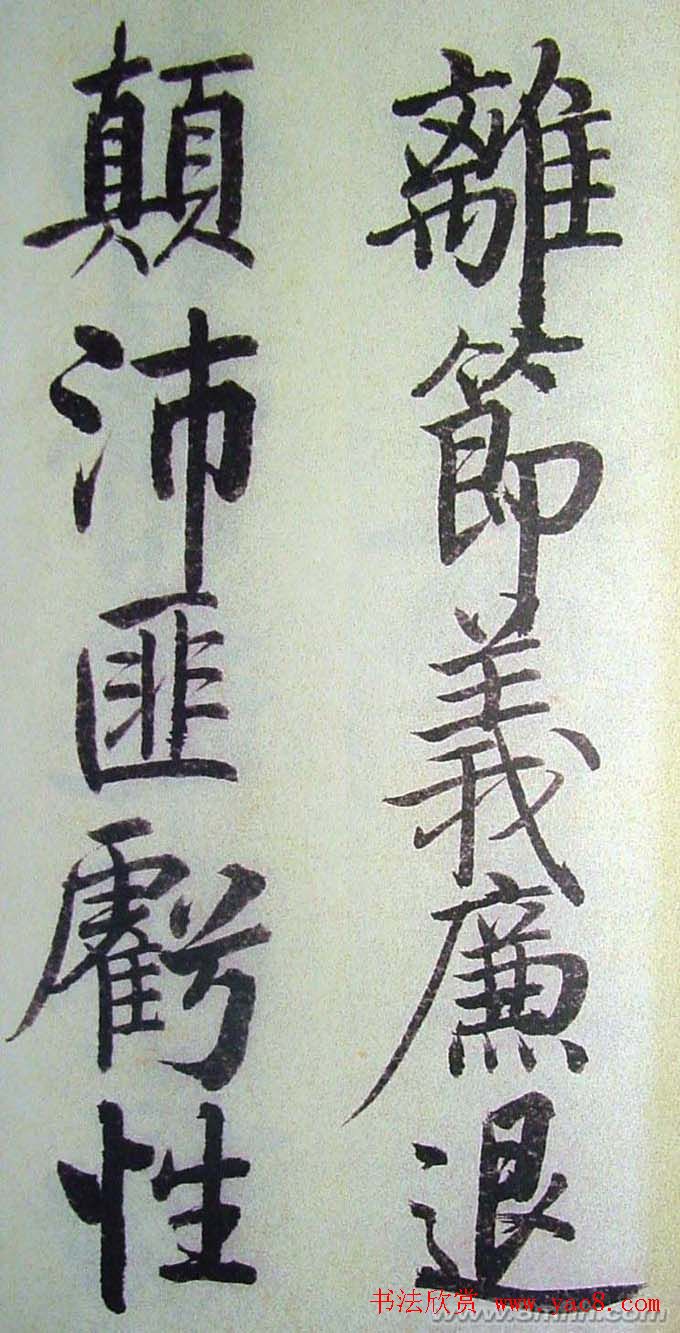 離節義廉退
顛沛匪虧性
书法欣赏 www.yac8.com